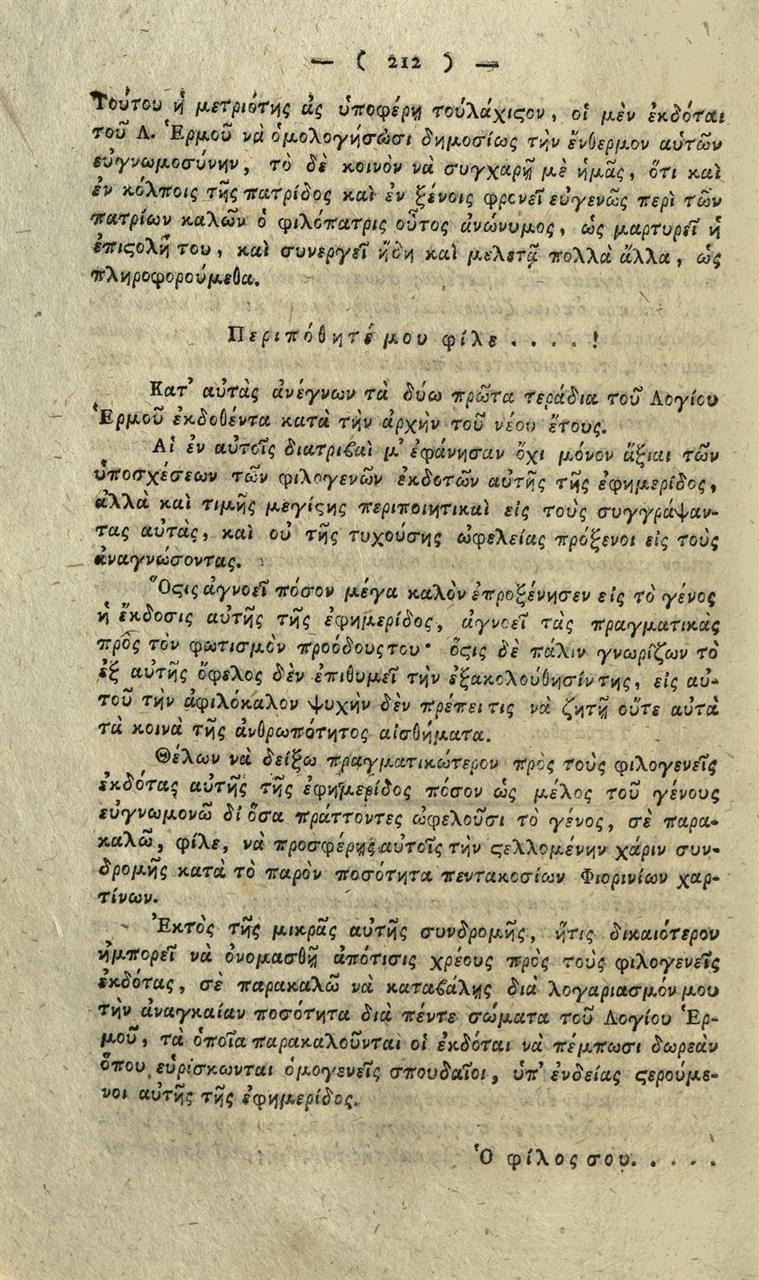 — ( 212 ) —
Τούτου ἡ μετριότης ἂς ὑποφέρῃ τούλάχιςον, οἱ μὲν ἐκδόται
τοῦ Λ. Ἑρμοῦ νὰ ὁμολογήσωσι δημοσίως τὴν ἔνθερμον αὑτῶν
εὐγνωμοσύνην, τὸ δὲ κοινὸν νὰ συγχαρῇ μὲ ἡμᾶς, ὅτι καὶ
ἐν κόλποις τῆς πατρίδος καὶ ἐν ξένοις φρονεῖ εὐγενῶς περὶ τῶν
πατρίων καλῶν ὁ φιλόπατρις οὗτος ἀνώνυμος, ὡς μαρτυρεῖ ἡ
ἐπιςολή του, καὶ συνεργεῖ ἤδη καὶ μελετᾷ πολλὰ ἄλλα, ὡς
πληροφορούμεθα.
Περιπόθητέ μου φίλε . . . . !
Κατ' αὐτὰς ἀνέγνων τὰ δύω πρῶτα τεράδια τοῦ Λογίου
Ἑρμοῦ ἐκδοθέντα κατὰ τὴν ἀρχὴν τοῦ νέου ἔτους.
Αἱ ἐν αὐτοῖς διατριβαὶ μ' ἐφάνησαν ὄχι μόνον ἄξιαι τῶν
ὑποσχέσεων τῶν φιλογενῶν ἐκδοτῶν αὐτῆς τῆς ἐφημερίδος,
ἀλλὰ καὶ τιμῆς μεγίςης περιποιητικαὶ εἰς τοὺς συγγράψαν-
τας αὐτὰς, καὶ οὐ τῆς τυχούσης ὠφελείας πρόξενοι εἰς τοὺς
ἀναγνώσοντας.
Ὅςις ἀγνοεῖ πόσον μέγα καλὸν ἐπροξένησεν εἰς τὸ γένος
ἡ ἔκδοσις αὐτῆς τῆς ἐφημερίδος, ἀγνοεῖ τὰς πραγματικὰς
πρὸς τὸν φωτισμὸν προόδους του· ὅςις δὲ πάλιν γνωρίζων τὸ
ἐξ αὐτῆς ὄφελος δὲν ἐπιθυμεῖ τὴν ἐξακολούθησίν της, εἰς αὐ-
τοῦ τὴν ἀφιλόκαλον ψυχὴν δὲν πρέπει τις νὰ ζητῇ οὔτε αὐτὰ
τὰ κοινὰ τῆς ἀνθρωπότητος αἰσθήματα.
Θέλων νὰ δείξω πραγματικώτερον πρὸς τοὺς φιλογενεῖς
ἐκδότας αὐτῆς τῆς ἐφημερίδος πόσον ὡς μέλος τοῦ γένους
εὐγνωμονῶ δι ὅσα πράττοντες ὠφελοῦσι τὸ γένος, σὲ παρα-
καλῶ, φίλε, νὰ προσφέρῃς αὐτοῖς τὴν ςελλομένην χάριν συν-
δρομῆς κατὰ τὸ παρὸν ποσότητα πεντακοσίων Φιορινίων χαρ-
τίνων.
Ἐκτὸς τῆς μικρᾶς αὐτῆς συνδρομῆς, ἥτις δικαιότερον
ἠμπορεῖ νὰ ὀνομασθῇ ἀπότισις χρέους πρὸς τοὺς φιλογενεῖς
ἐκδότας, σὲ παρακαλῶ νὰ καταβάλῃς διὰ λογαριασμόν μου
τὴν ἀναγκαίαν ποσότητα διὰ πέντε σώματα τοῦ Λογίου Ἑρ-
μοῦ, τὰ ὁποῖα παρακαλοῦνται οἱ ἐκδόται νὰ πέμπωσι δωρεὰν
ὅπου εὑρίσκωνται ὁμογενεῖς σπουδαῖοι, ὑπ' ἐνδείας ςερούμε-
νοι αὐτῆς τῆς ἐφημερίδος.
Ὁ φίλος σου. . . . .